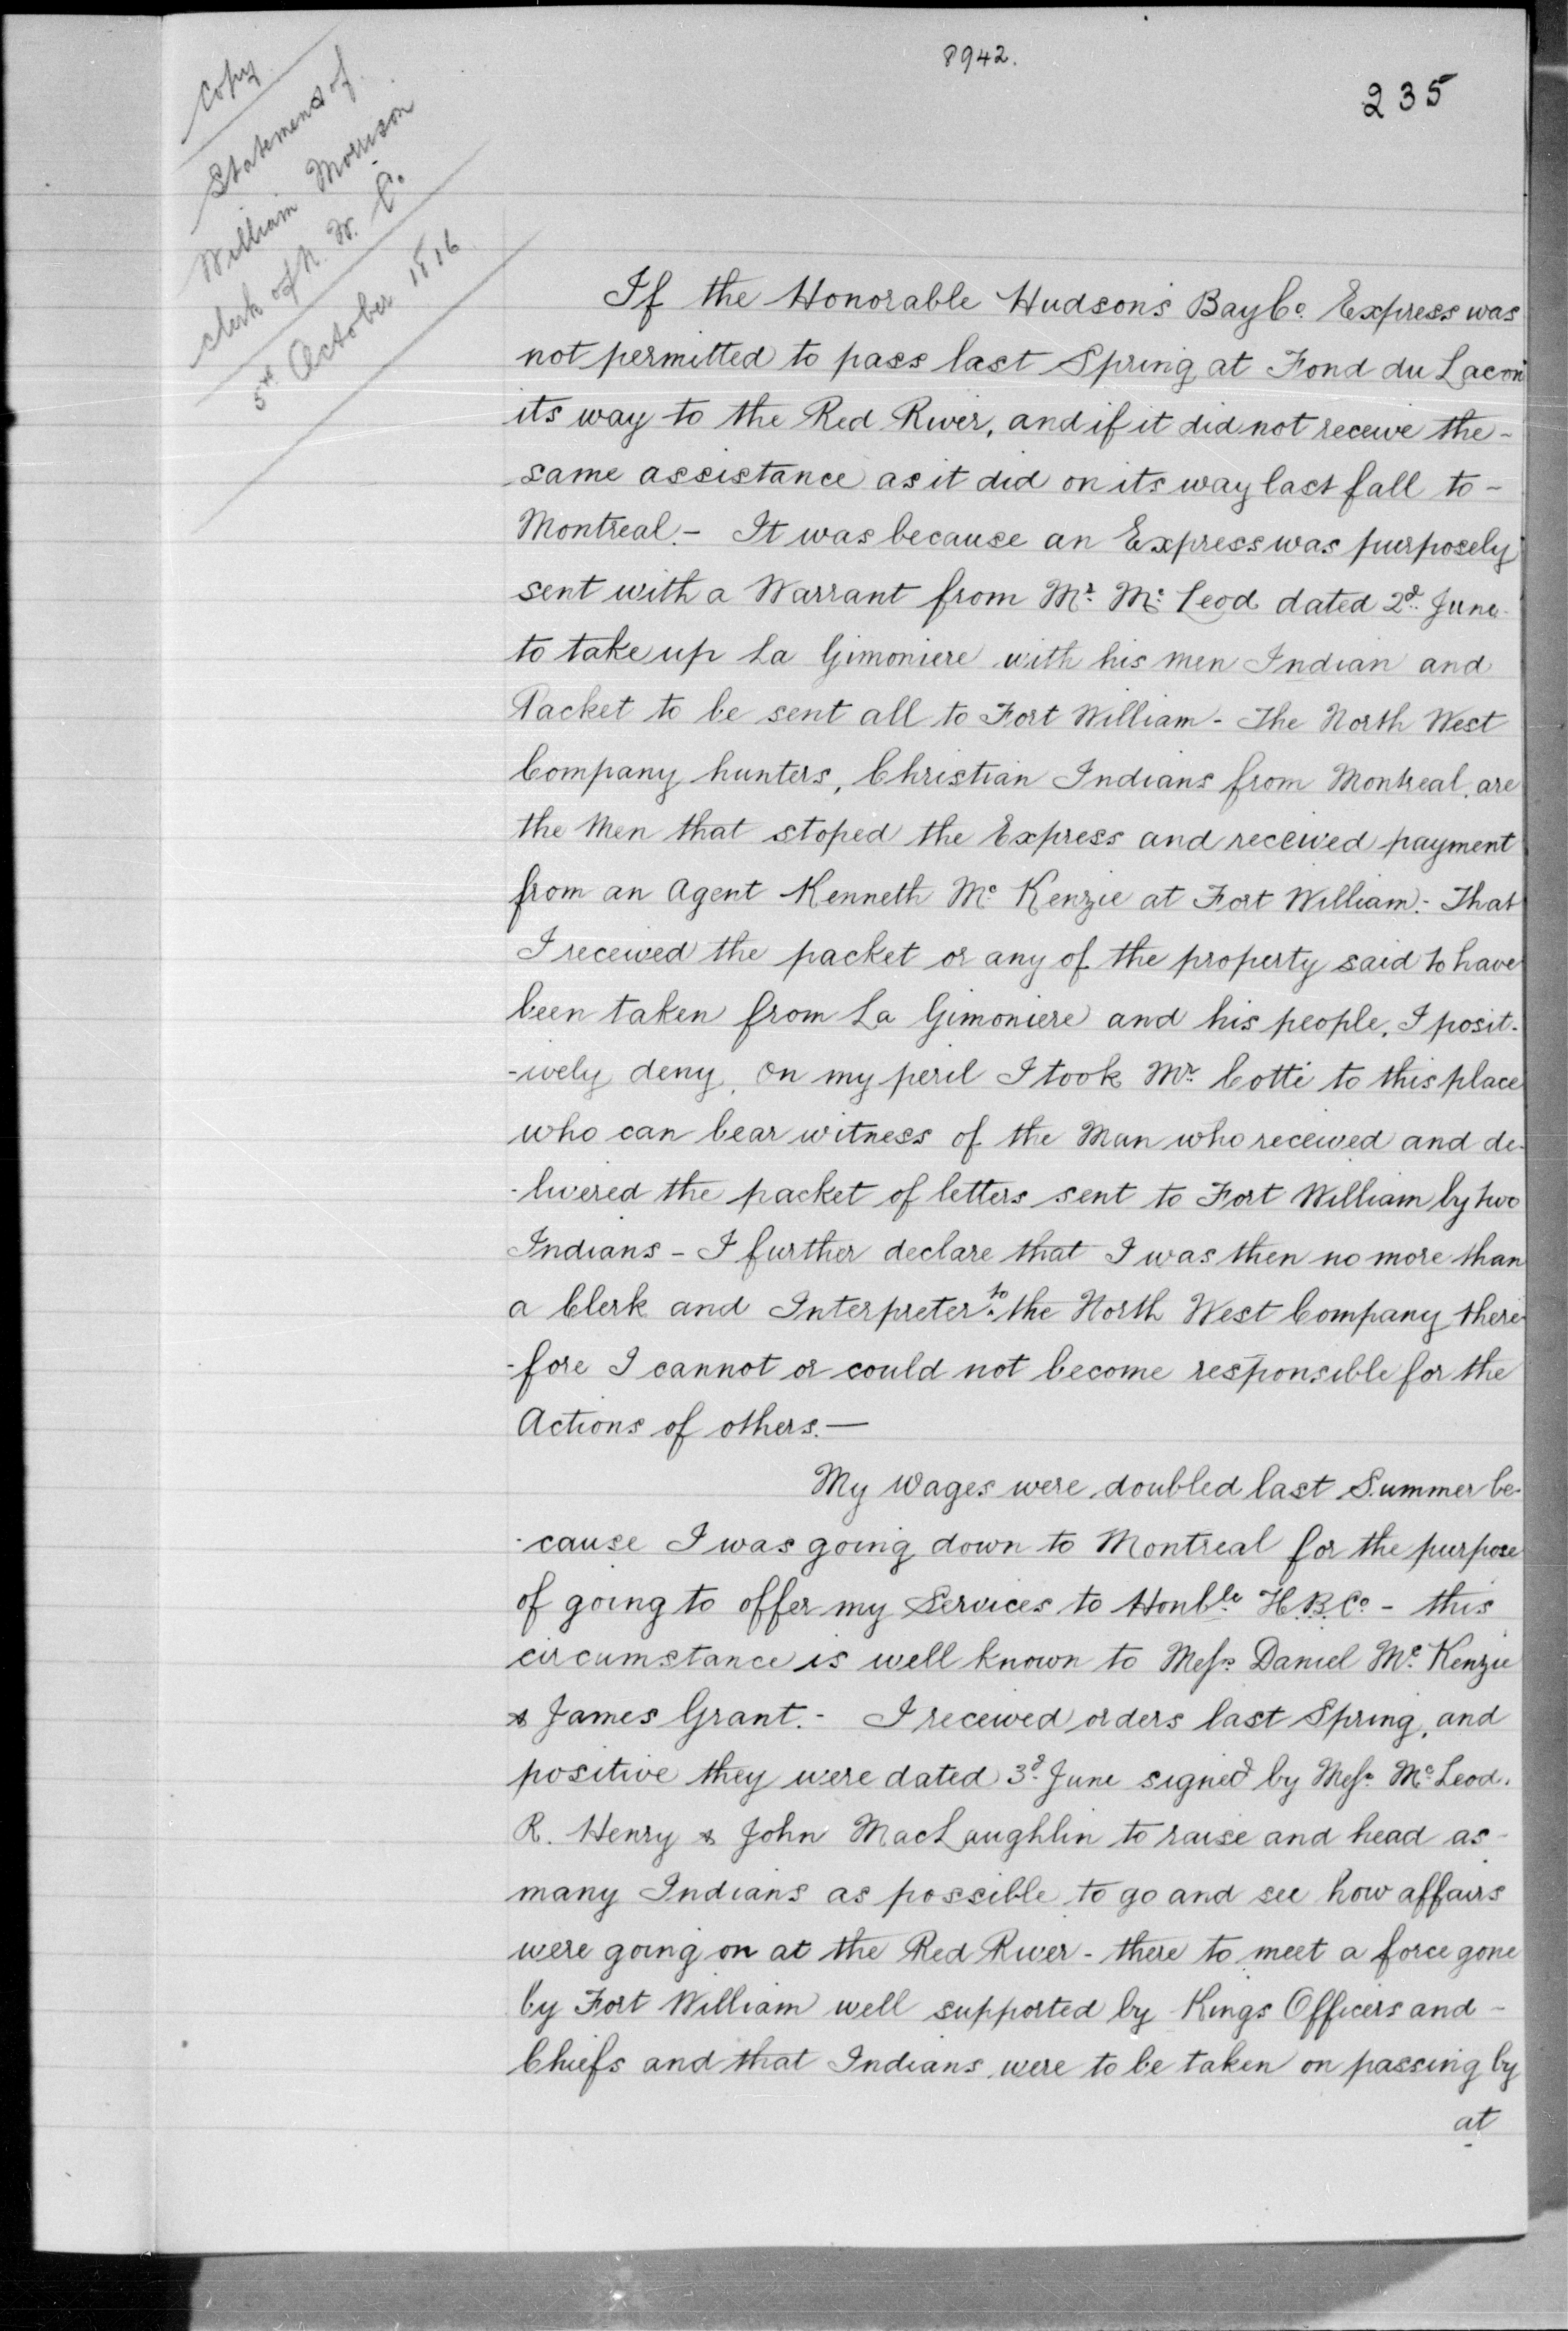 8942.
235
Copy
Statement of
William Morrison
Clerk of N. W. Co.
5th October 1816
If the Honorable Hudson's Bay Co. Express was
not permitted to pass last Spring at Fond du Lac on
its way to the Red River, and if it did not receive the-
same assistance as it did on its way last fall to-
Montreal.- It was because an Express was purposely
sent with a Warrant from Mr. Mc Leod dated 2d. June
to take up La Gimoniere with his men Indian and
Packet to be sent all to Fort William - The North West
Company hunters, Christian Indians from Montreal, are
the Men that stoped the Express and received payment
from an Agent Kenneth Mc Kenzie at Fort William:- That
I received the packet or any of the property said to have
been taken from La Gimoniere and his people, I posit-
-ively deny, On my peril I took Mr. Cotti to this place
who can bear witness of the Man who received and de-
-livered the packet of letters sent to Fort William by two
Indians - I further declare that I was then no more than
a Clerk and Interpreter to the North West Company there-
-fore I cannot or could not become responsible for the
Actions of others.-
My Wages were doubled last Summer be-
-cause I was going down to Montreal for the purpose
of going to offer my Services to Honble H.B.Co. - this
circumstance is well known to Messrs Daniel Mc Kenzie
& James Grant.- I received orders last Spring, and
positive they were dated 3d. June signed by Messrs Mc Leod.
R. Henry & John MacLaughlin to raise and head as-
many Indians as possible to go and see how affairs
were going on at the Red River - there to meet a force gone
by Fort William well supported by Kings Officers and -
Chiefs and that Indians were to be taken on passing by
at